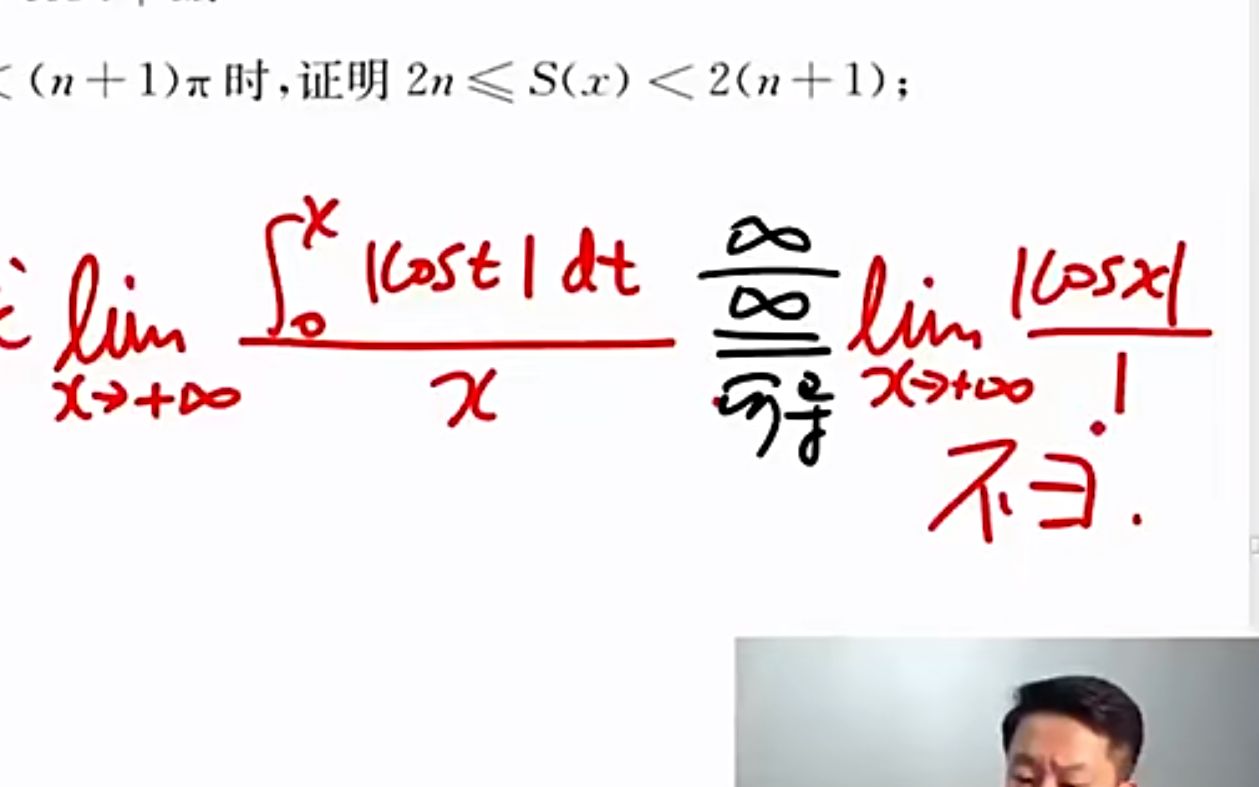 < (n+1)π 时,证明 2n ⩽ S(x) < 2(n+1);
lim x→+∞ ∫₀ˣ |cost| dt / x ∞/∞ == 洛 lim x→+∞ |cosx| / 1
不∃.